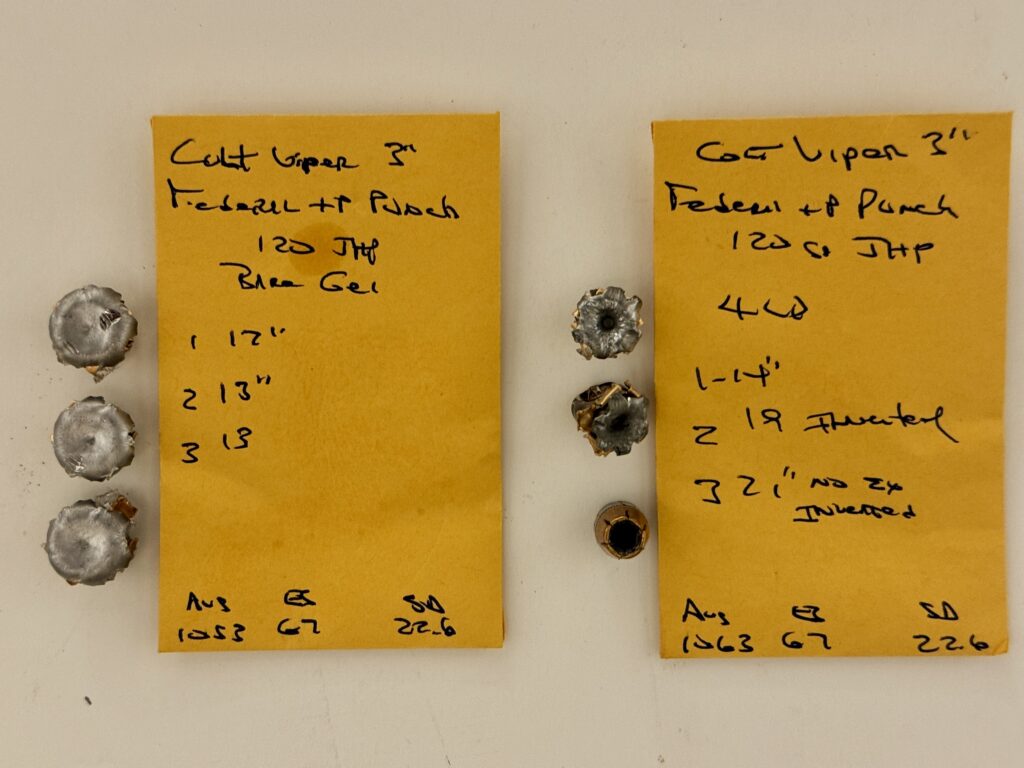 Colt Viper 3"
Federal +P Punch
120 JHP
Bare Gel
1 12"
2 13"
3 13
Avg ES SD
1053 67 22.6
Colt Viper 3"
Federal +P Punch
120 Gr JHP
4LD
1-14"
2 19 Inverted
3 21" No Ex
Inverted
Avg ES SD
1063 67 22.6